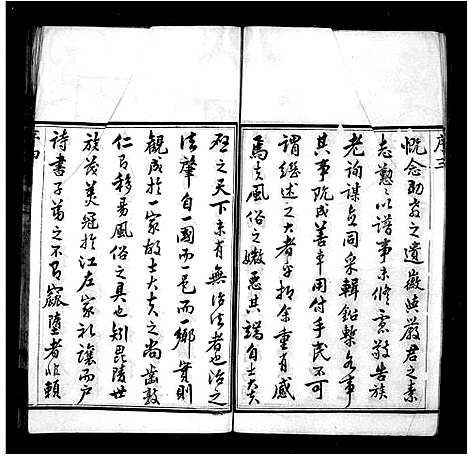 序三
慨念助教之遺徽與嚴君之素
志懃以譜事未修爰敬告族
老詢謀僉同采輯鉛槧各事
其事既成善車用付手民不可
謂繼述之大者乎抑余重有感
焉夫風俗之媺惡其端自士大夫
啟之天下未有無治法者也治之
法肇自一國而一邑而一鄉實則
觀成於一家故士大夫之尚齒敦
仁百移易風俗之具也矧毘陵世
族茂美冠於江左家禮讓而戶
詩書子弟之不有窳墮者非賴
序四